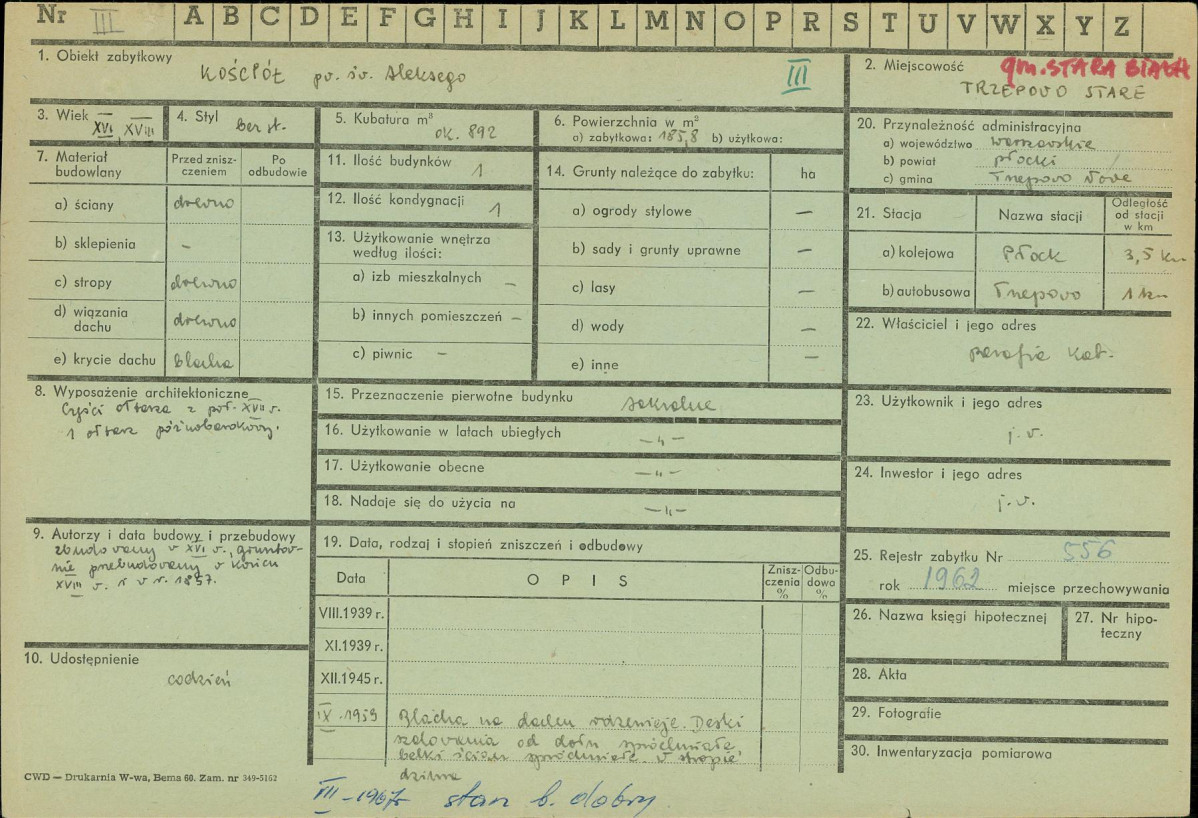 Nr III A B C D E F G H I J K L M N O P R S T U V W X Y Z
1. Obiekt zabytkowy
KOŚCIÓŁ pw. św. Aleksego III
2. Miejscowość gm. STARA BIAŁA
TRZEPOWO STARE
3. Wiek XVI, XVIII
4. Styl bez st.
5. Kubatura m³
ok. 892
6. Powierzchnia w m²
a) zabytkowa: 185,8 b) użytkowa:
20. Przynależność administracyjna
a) województwo warszawskie
b) powiat płocki
c) gmina Trzepowo Nowe
7. Materiał budowlany
Przed znisz-
czeniem
Po
odbudowie
a) ściany drewno
b) sklepienia –
c) stropy drewno
d) wiązania
dachu drewno
e) krycie dachu blacha
11. Ilość budynków 1
12. Ilość kondygnacji 1
13. Użytkowanie wnętrza
według ilości:
a) izb mieszkalnych –
b) innych pomieszczeń –
c) piwnic –
14. Grunty należące do zabytku: ha
a) ogrody stylowe –
b) sady i grunty uprawne –
c) lasy –
d) wody –
e) inne –
21. Stacja Nazwa stacji
Odległość
od stacji
w km
a) kolejowa Płock 3,5 km
b) autobusowa Trzepowo 1 km
22. Właściciel i jego adres
parafia kat.
8. Wyposażenie architektoniczne
Części ołtarza z poł. XVII w.
1 ołtarz późnobarokowy.
15. Przeznaczenie pierwotne budynku sakralne
16. Użytkowanie w latach ubiegłych –„–
17. Użytkowanie obecne –„–
18. Nadaje się do użycia na –„–
23. Użytkownik i jego adres
j. w.
24. Inwestor i jego adres
j. w.
9. Autorzy i data budowy i przebudowy
zbudowany w XVI w., gruntow-
nie przebudowany w końcu
XVIII w. i w r. 1857.
19. Data, rodzaj i stopień zniszczeń i odbudowy
Data OPIS
Znisz-
czenia
%
Odbu-
dowa
%
VIII.1939 r.
XI.1939 r.
XII.1945 r.
IX.1959 Blacha na dachu rdzewieje. Deski
szalowania od dołu spróchniałe,
belki ścian spróchniałe. W stropie
dziura
25. Rejestr zabytku Nr 556
rok 1962 miejsce przechowywania
26. Nazwa księgi hipotecznej
27. Nr hipo-
teczny
10. Udostępnienie
codzień
28. Akta
29. Fotografie
30. Inwentaryzacja pomiarowa
CWD — Drukarnia W-wa, Bema 60. Zam. nr 349-5162
VII – 1967r stan b. dobry